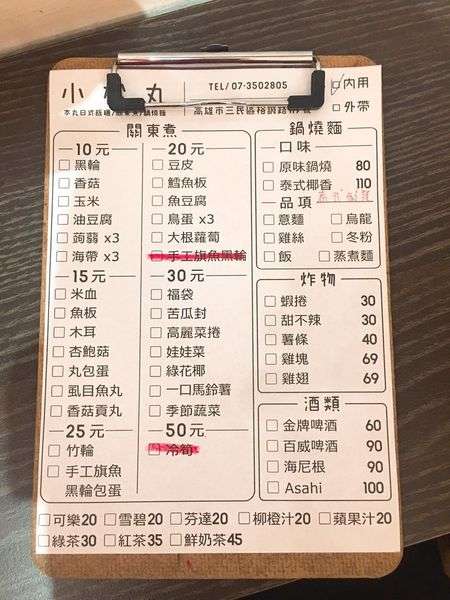 小 丸
TEL/ 07-3502805
本丸日式
高雄市三民區裕誠路
□內用
□外帶
關東煮
10元
□黑輪
□香菇
□玉米
□油豆腐
□蒟蒻 x3
□海帶 x3
15元
□米血
□魚板
□木耳
□杏鮑菇
□丸包蛋
□虱目魚丸
□香菇貢丸
25元
□竹輪
□手工旗魚
黑輪包蛋
20元
□豆皮
□鱈魚板
□魚豆腐
□鳥蛋 x3
□大根蘿蔔
□手工旗魚黑輪
30元
□福袋
□苦瓜封
□高麗菜捲
□娃娃菜
□綠花椰
□一口馬鈴薯
□季節蔬菜
50元
□冷筍
鍋燒麵
口味
□原味鍋燒 80
□泰式椰香 110
品項
□意麵 □烏龍
□雞絲 □冬粉
□飯 □蒸煮麵
炸物
□蝦捲 30
□甜不辣 30
□薯條 40
□雞塊 69
□雞翅 69
酒類
□金牌啤酒 60
□百威啤酒 90
□海尼根 90
□Asahi 100
□可樂20 □雪碧20 □芬達20 □柳橙汁20 □蘋果汁20
□綠茶30 □紅茶35 □鮮奶茶45